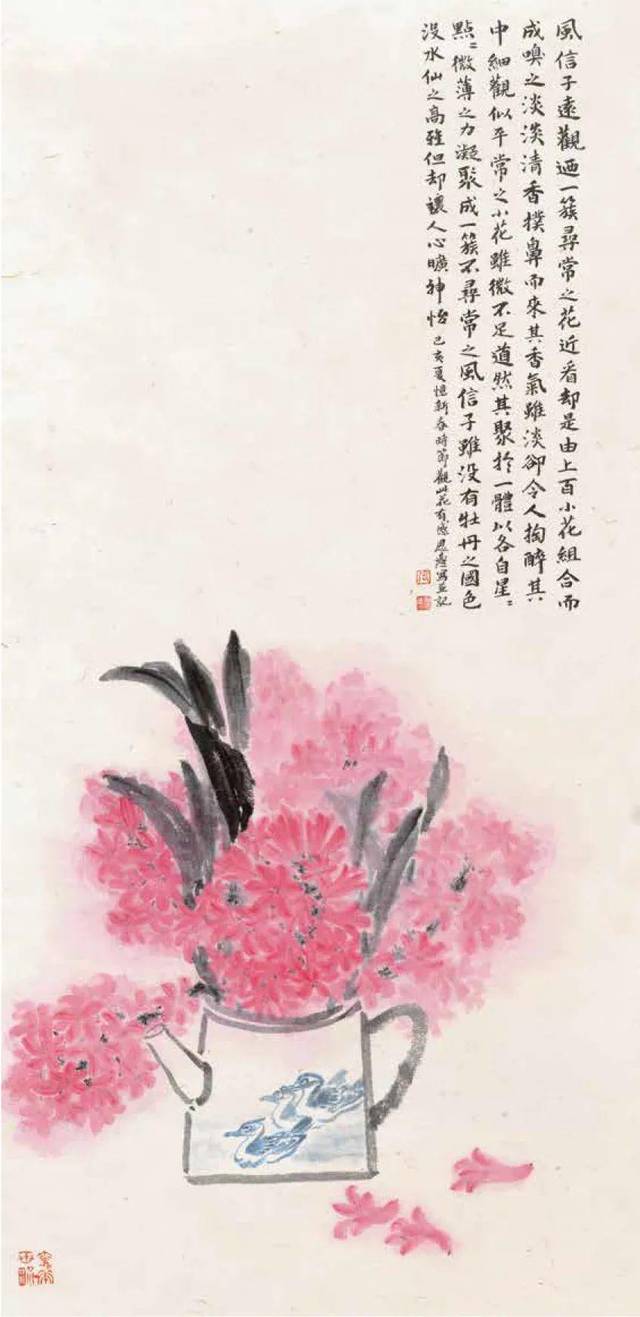 風信子遠觀迺一簇尋常之花近看却是由上百小花組合而
成嗅之淡淡清香撲鼻而來其香氣雖淡卻令人掏醉其
中細觀似平常之小花雖微不足道然其聚於一體以各自星〻
點〻微薄之力凝聚成一簇不尋常之風信子雖没有牡丹之國色
没水仙之高雅但却讓人心曠神怡 己亥夏憶新春時節觀此花有感恩蔆寫並記